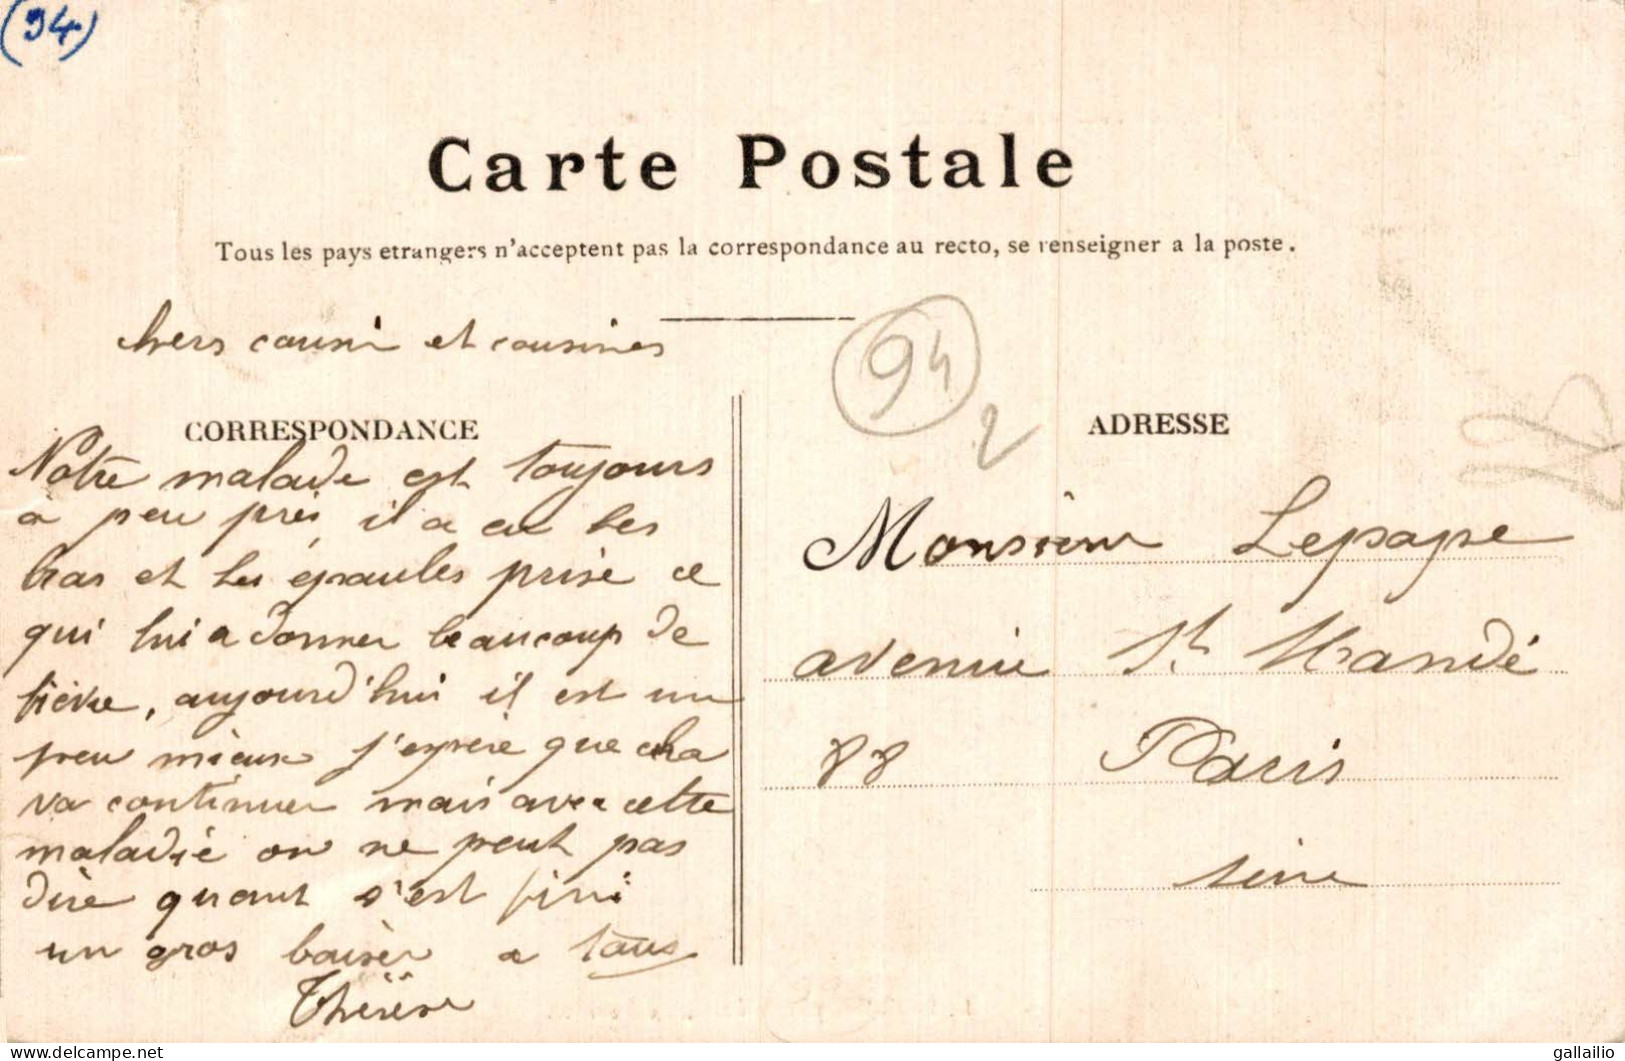 (94)
Carte Postale
Tous les pays etrangers n'acceptent pas la correspondance au recto, se renseigner a la poste.
chers cousin et cousines
94
2
CORRESPONDANCE
Notre malade est toujours
a peu près, il a eu les
bras et les épaules prise ce
qui lui a donner beaucoup de
fièvre, aujourd'hui il est un
peu mieux j'espère que cela
va continuer mais avec cette
maladie on ne peut pas
dire quant s'est fini
un gros baiser a tous
Thérèse
ADRESSE
Monsieur Lepape
avenue St Mandé
88 Paris
seine
delcampe.net
gallailio